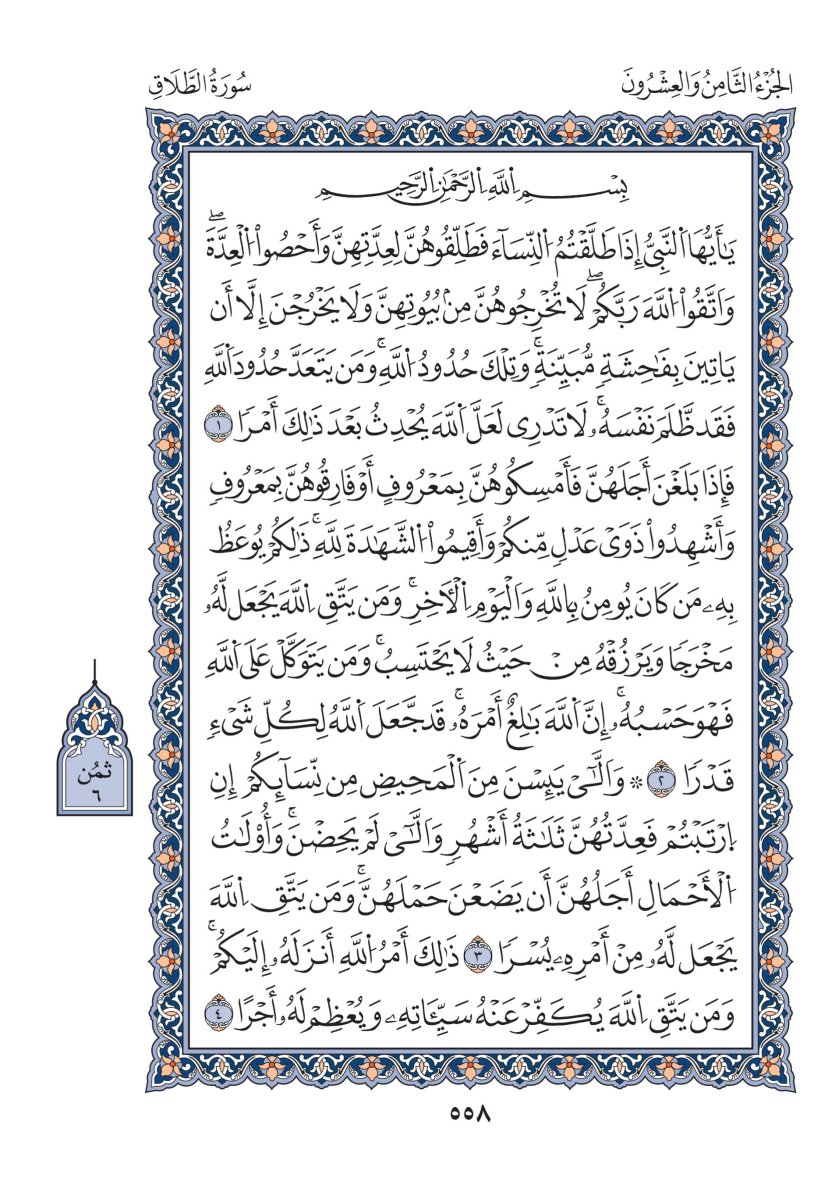 الجُزْءُ الثَّامِنُ وَالعِشْرُونَ
سُورَةُ الطَّلَاقِ
بِسْمِ اِ۬للَّهِ اِ۬لرَّحْمَٰنِ اِ۬لرَّحِيمِ
يَٰأَيُّهَا اَ۬لنَّبِيُّ إِذَا طَلَّقْتُمُ اُ۬لنِّسَآءَ فَطَلِّقُوهُنَّ لِعِدَّتِهِنَّ وَأَحْصُواْ اُ۬لْعِدَّةَۖ
وَاتَّقُواْ اُ۬للَّهَ رَبَّكُمْۖ لَا تُخْرِجُوهُنَّ مِنۢ بُيُوتِهِنَّ وَلَا يَخْرُجْنَ إِلَّا أَن
يَاتِينَ بِفَٰحِشَةٖ مُّبَيِّنَةٖۚ وَتِلْكَ حُدُودُ اُ۬للَّهِۚ وَمَن يَتَعَدَّ حُدُودَ اَ۬للَّهِ
فَقَد ظَّلَمَ نَفْسَهُۥۚ لَا تَدْرِى لَعَلَّ اَ۬للَّهَ يُحْدِثُ بَعْدَ ذَٰلِكَ أَمْرٗا ١
فَإِذَا بَلَغْنَ أَجَلَهُنَّ فَأَمْسِكُوهُنَّ بِمَعْرُوفٍ أَوْ فَارِقُوهُنَّ بِمَعْرُوفٖ
وَأَشْهِدُواْ ذَوَىْ عَدْلٖ مِّنكُمْ وَأَقِيمُواْ اُ۬لشَّهَٰدَةَ لِلَّهِۚ ذَٰلِكُمْ يُوعَظُ
بِهِۦ مَن كَانَ يُومِنُ بِاللَّهِ وَالْيَوْمِ اِ۬لْأٓخِرِۚ وَمَن يَتَّقِ اِ۬للَّهَ يَجْعَل لَّهُۥ
مَخْرَجٗا وَيَرْزُقْهُ مِنْ حَيْثُ لَا يَحْتَسِبُۚ وَمَن يَتَوَكَّلْ عَلَى اَ۬للَّهِ
فَهْوَ حَسْبُهُۥۚ إِنَّ اَ۬للَّهَ بَٰلِغٌ أَمْرَهُۥۚ قَد جَّعَلَ اَ۬للَّهُ لِكُلِّ شَىْءٖ
قَدْرٗا ٢ * وَالَّٰٓىْ يَئِسْنَ مِنَ اَ۬لْمَحِيضِ مِن نِّسَآئِكُمْ إِنِ
اِ۪رْتَبْتُمْ فَعِدَّتُهُنَّ ثَلَٰثَةُ أَشْهُرٖ وَالَّٰٓىْ لَمْ يَحِضْنَۚ وَأُوْلَٰتُ
اُ۬لْأَحْمَالِ أَجَلُهُنَّ أَن يَضَعْنَ حَمْلَهُنَّۚ وَمَن يَتَّقِ اِ۬للَّهَ
يَجْعَل لَّهُۥ مِنْ أَمْرِهِۦ يُسْرٗا ٣ ذَٰلِكَ أَمْرُ اُ۬للَّهِ أَنزَلَهُۥ إِلَيْكُمْۚ
وَمَن يَتَّقِ اِ۬للَّهَ يُكَفِّرْ عَنْهُ سَيِّـَٔاتِهِۦ وَيُعْظِمْ لَهُۥ أَجْرًا ٤
ثمُن
٦
٥٥٨